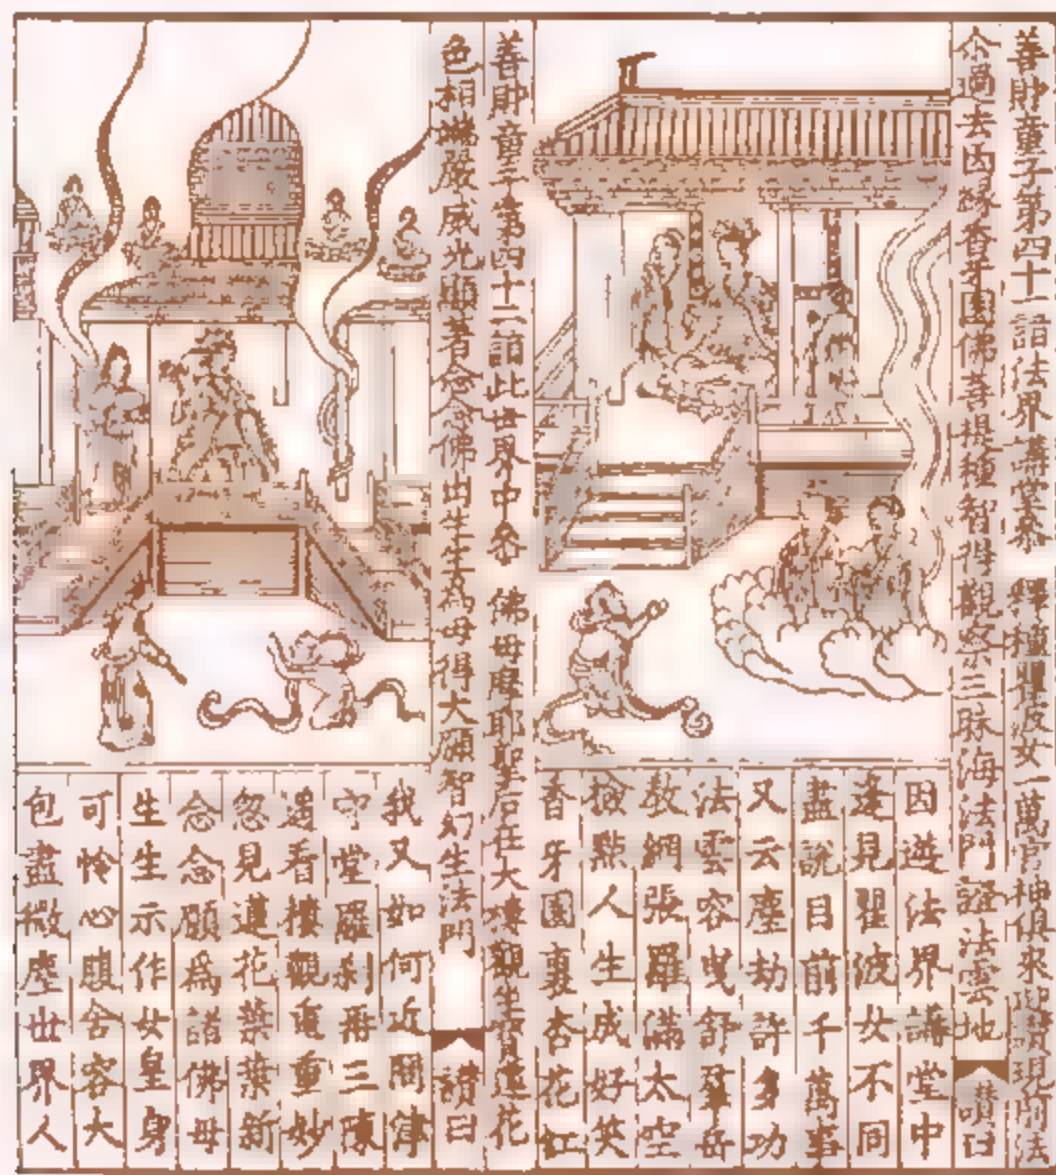 善財童子第四十一詣法界講堂叅 釋種瞿波女一萬宮神俱來現前法
念過去因緣香牙園佛菩提種智得觀察三昧海法門證法雲地 讃曰
因遊法界講堂中
逢見瞿波女不同
盡說目前千萬事
又云塵劫許多功
法雲容曳舒羣岳
教網張羅滿太空
撿點人生成好笑
香牙園裏杏花紅
善財童子第四十二詣此世界中叅 佛母摩耶聖后在大樓觀坐寶蓮花
色相端嚴威光顯著念念佛出生生為母得大願智幻生法門 讃曰
我又如何近問津
守堂羅刹再三陳
遇看樓觀重重妙
忽見蓮花葉葉新
念念願為諸佛母
生生示作女皇身
可怜心膓含容大
包盡微塵世界人